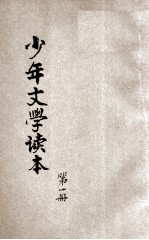 少年文學读本
第一册